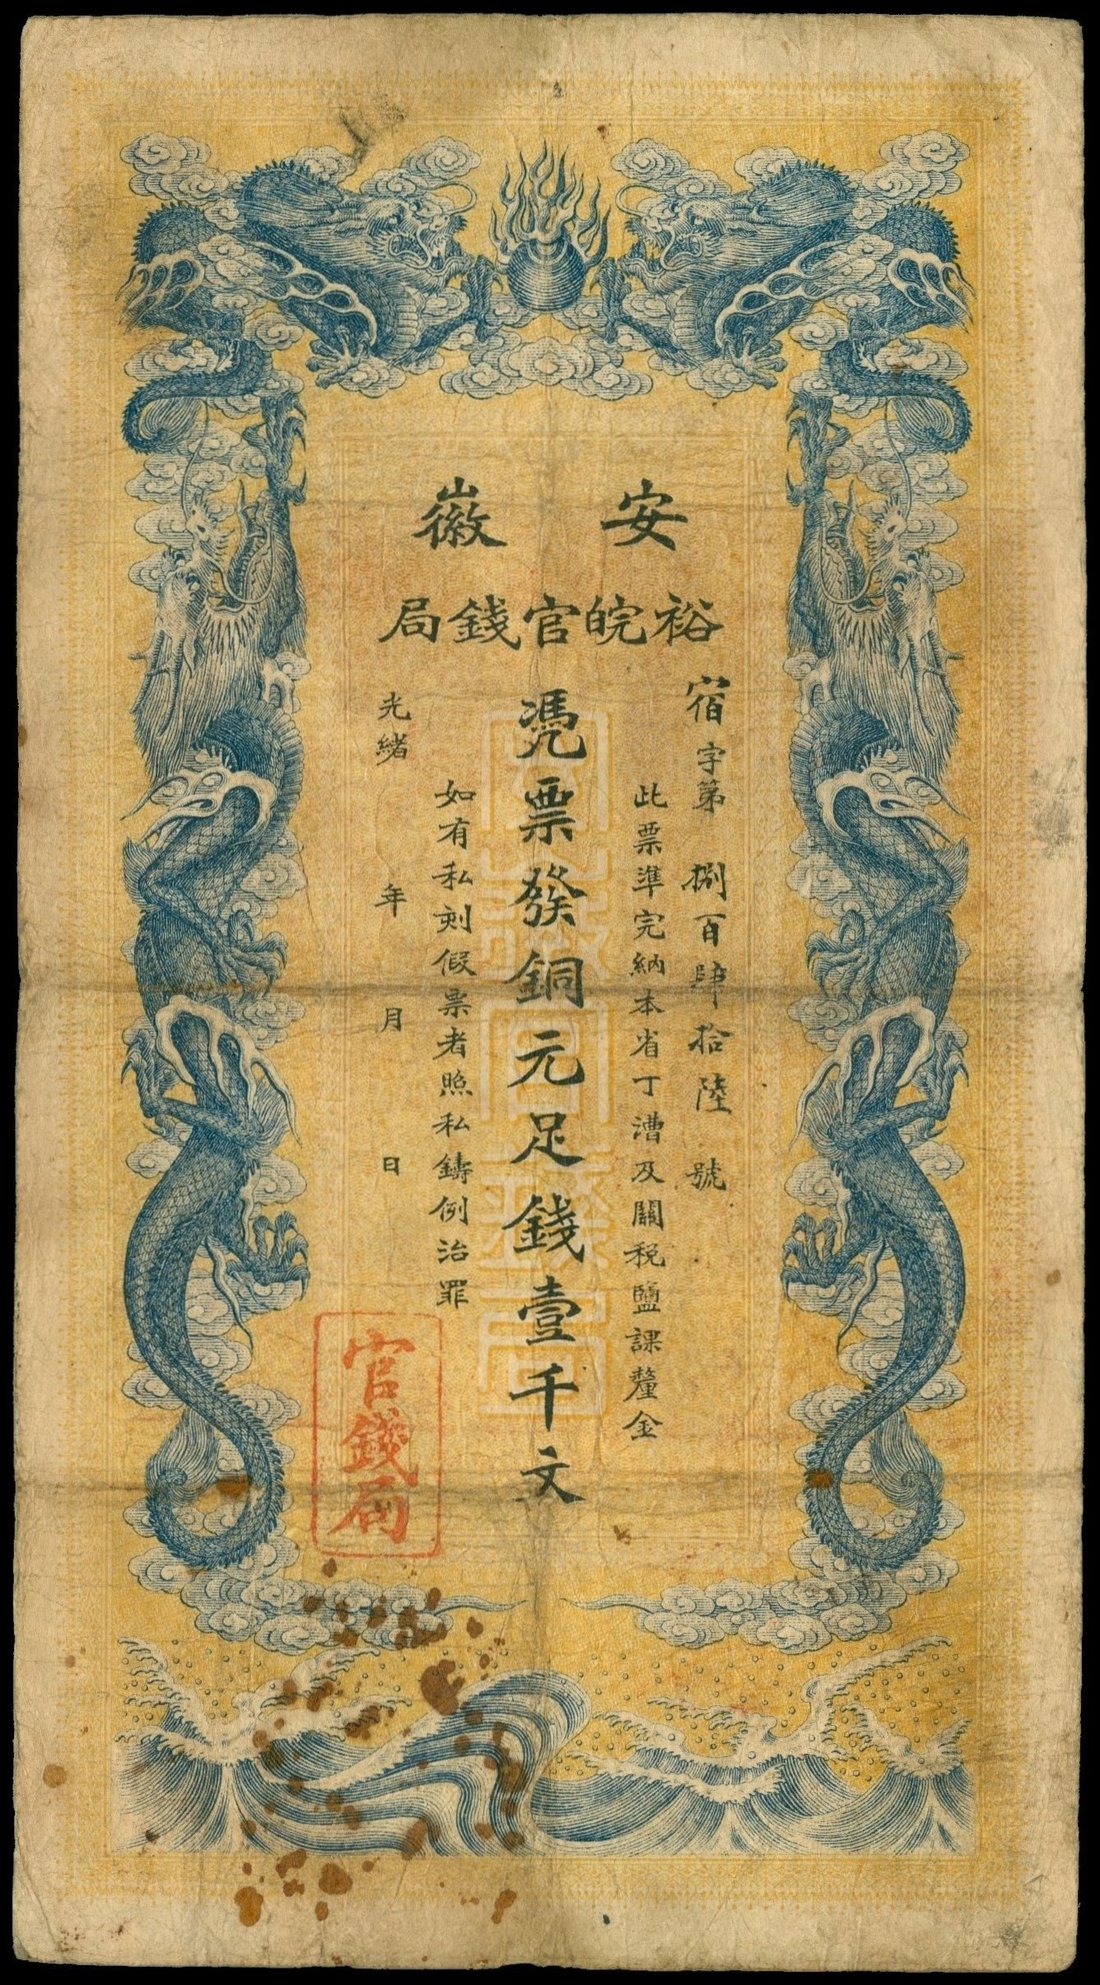 安徽
裕皖官錢局
宿字第捌百肆拾陸號
此票準完納本省丁漕及關税鹽課釐金
憑票發銅元足錢壹千文
如有私刻假票者照私鑄例治罪
光緒年月日
官錢局
安徽官錢局